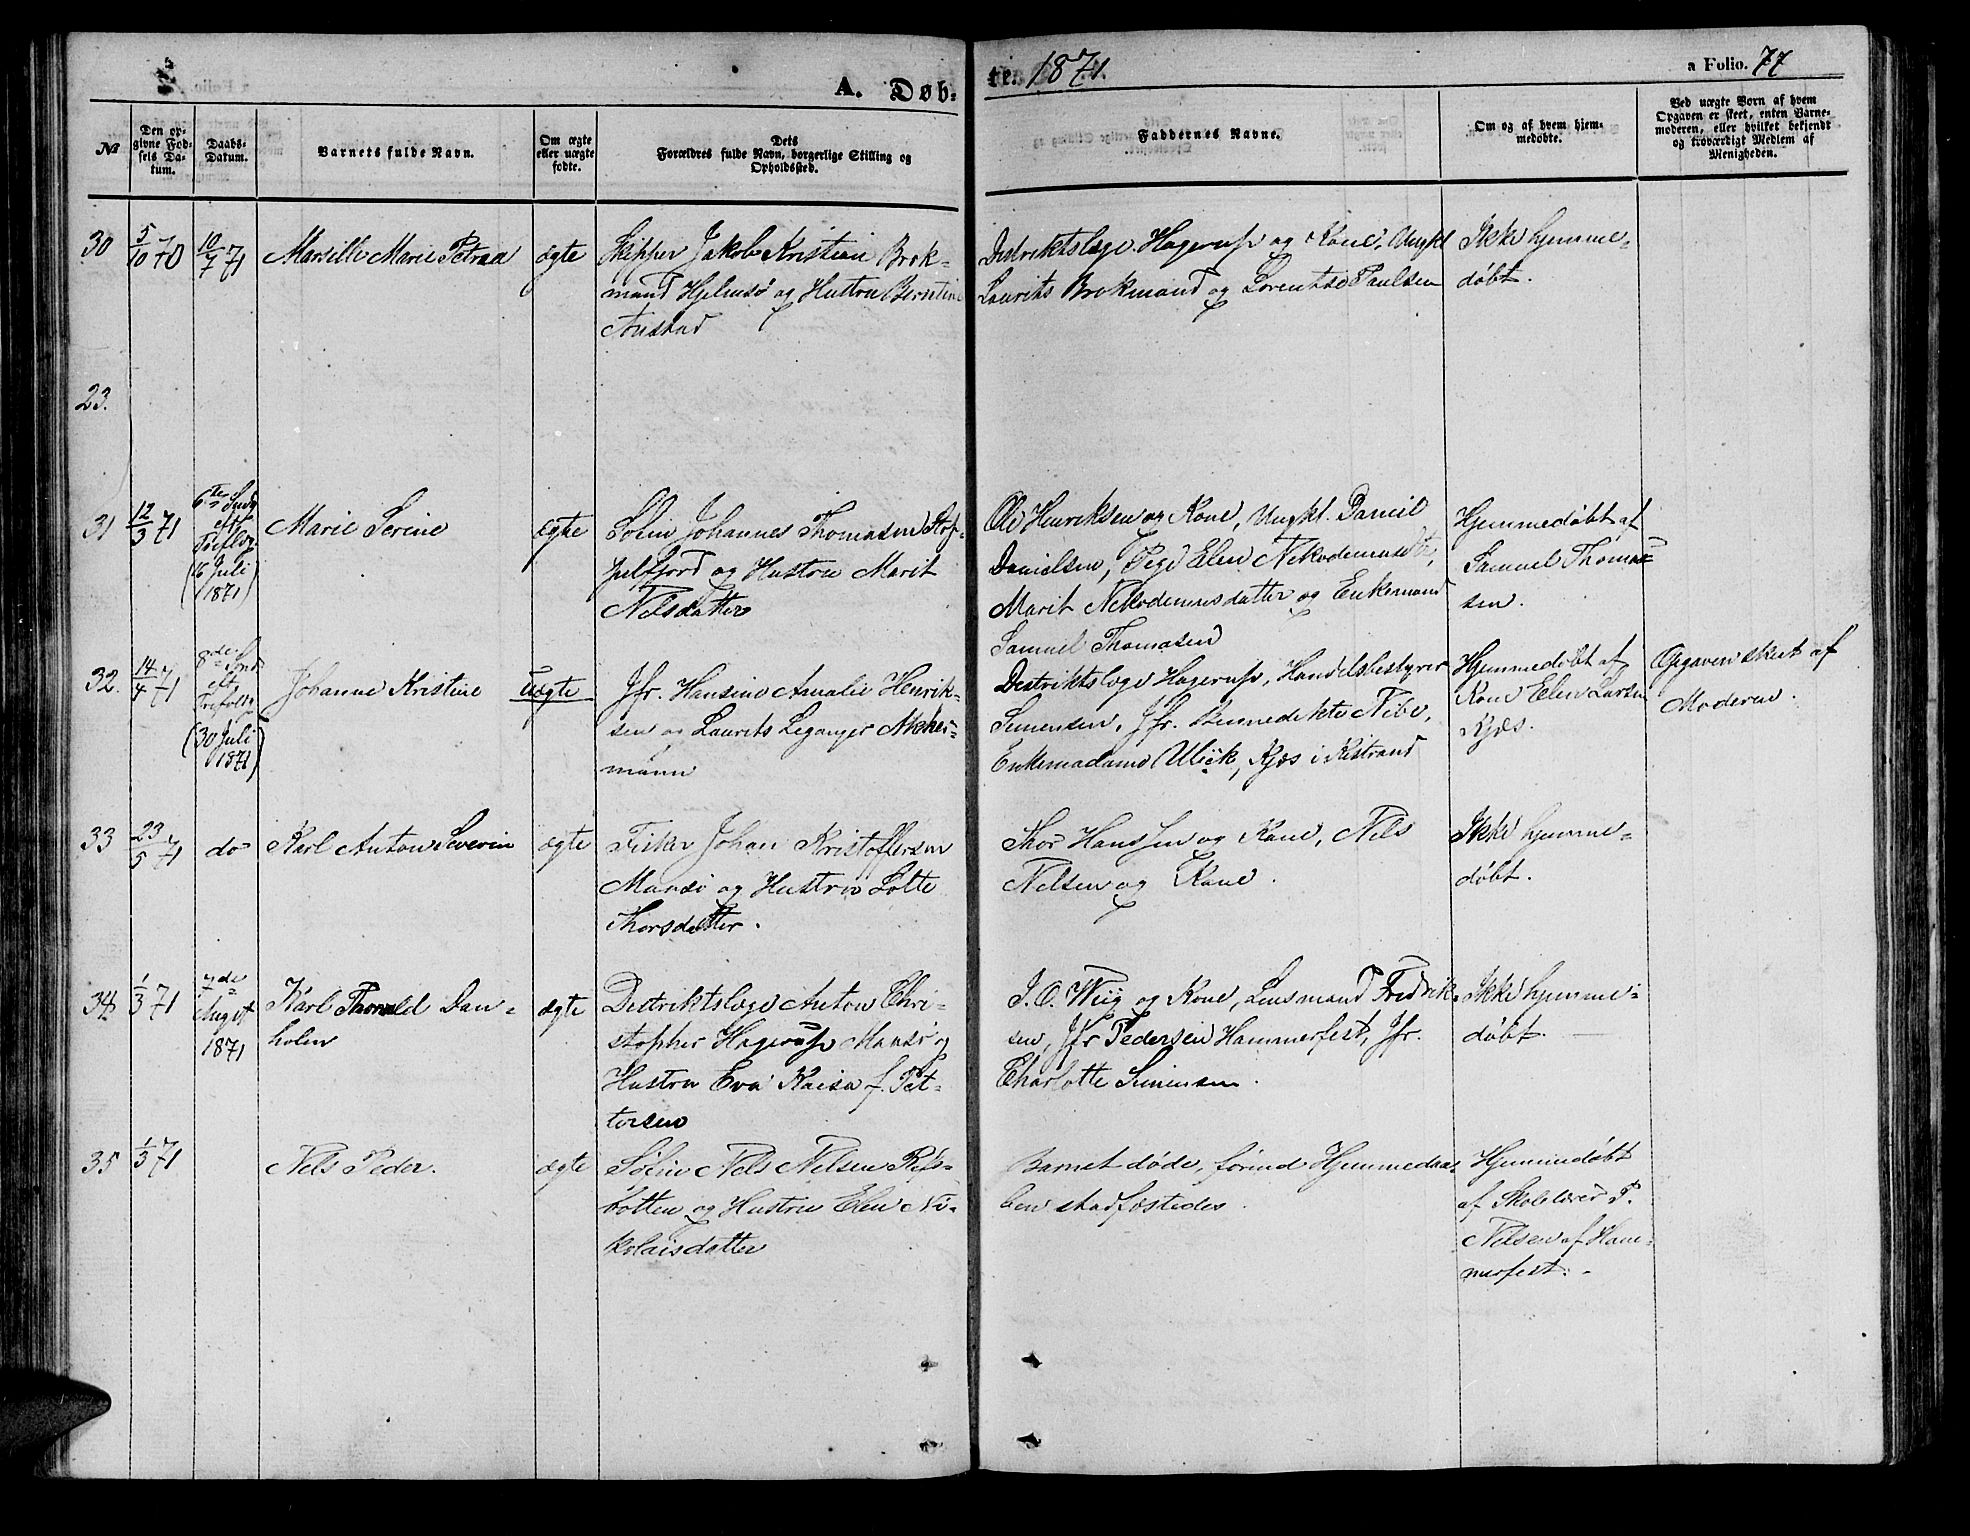 A. Døb-
te. 1871.
a Folio. 77
№
Den op-
givne Fød-
sels Da-
tum.
Daabs-
Datum.
Barnets fulde Navn.
Om ægte
eller uægte
fødte.
Dets
Forældres fulde Navn, borgerlige Stilling og
Opholdssted.
Faddernes Navne.
Om og af hvem hjem-
medøbte.
Ved uægte Børn af hvem
Opgaven er skeet, enten Barne-
moderen, eller hvilket bekjendt
og troværdigt Medlem af
Menigheden.
30
5/10 70
10/7 71
Marselle Marie Petrea
ægte
Skipper Jakob Kristian Brok-
mand Hjelmsø og Hustru Berntine
Anstad
Destriktslæge Hagerup og Kone, Ungkl
Laurits Brokmand og Lorentse Paulsen
Ikke hjemme-
døbt.
23.
31
12/3 71
6te Sønd
eft
Trefoldg
(16 Juli
1871)
Marie Serine
ægte
Søfin Johannes Thomasen Stor-
fjord og Hustru Marit
Nelsdatter
Ole Henriksen og Kone, Ungkl. Daniel
Danielsen, Pige Elen Nekodemusdtr,
Marit Nekodemusdatter og Enkemand
Samuel Thomasen
Hjemmedøbt af
Samuel Thoma-
sen.
32.
14/4 71
8de Sønd
eft
Trefoldg
(30 Juli
1871)
Johanne Kristine
Uægte
Jfr. Hansine Amalie Henrik-
sen og Laurits Leganger Akker-
mann
Destriktslæge Hagerup, Handelsbestyrer
Simensen, Jfr. Bennedikte Nibe,
Enkemadame Ulich, Kjæs i Kistrand
Hjemmedøbt af
Kone Elen Larsen
Kjæs.
Opgaven skeet af
Moderen.
33
23/5 71
do
Karl Anton Severin
ægte
Fisker Johan Kristoffersen
Maasø og Hustru Lotte
Thorsdatter.
Thor Hansen og Kone, Nels
Nelsen og Kone.
Ikke hjemme-
døbt.
34
1/3 71
7de
August
1871
Karl Thorvald Dan-
holm
ægte
Destriktslæge Anton Chri-
stopher Hagerup Maasø og
Hustru Eva Kaisa f. Pet-
tersen
J. O. Wiig og Kone, Lensmand Fredrik-
sen, Jfr Pedersen Hammerfest, Jfr.
Charlotte Simensen.
Ikke hjemme-
døbt.
35
1/3 71
Nels Peder.
ægte
Søfin Nels Nelsen Refs-
botten og Hustru Elen Ni-
kolaisdatter
Barnet døde, førend Hjemmedaa-
ben stadfæstedes.
Hjemmedøbt
af Skolelærer P.
Nelsen af Ham-
merfest.